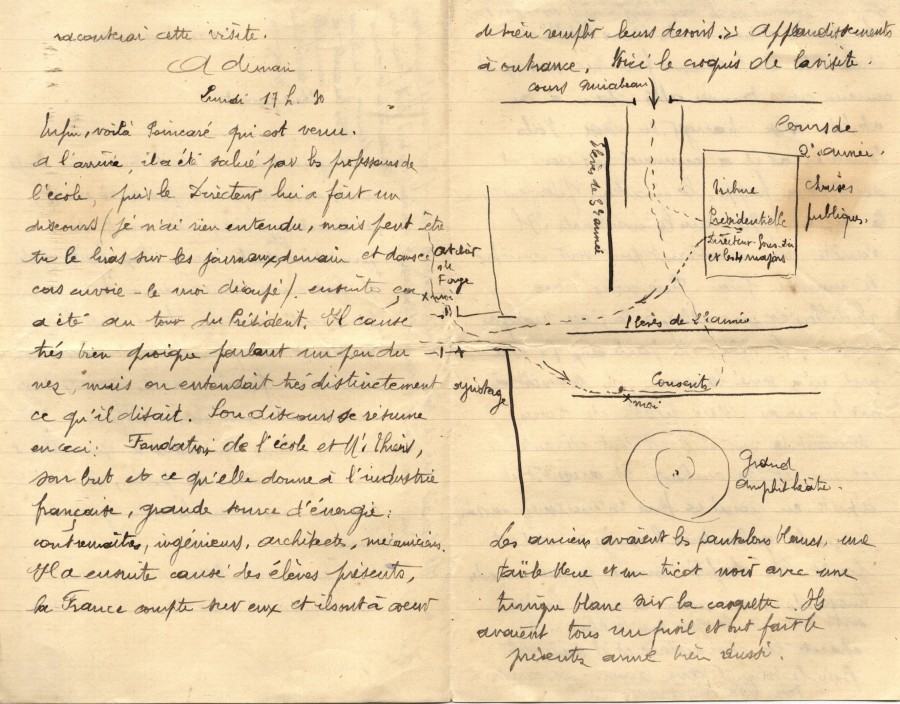 raconterai cette visite.
A demain
Lundi 17 h. 30
Enfin, voilà Poincaré qui est venu.
A l'arrivée, il a été salué par les professeurs de
l'école, puis le Directeur lui a fait un
discours (je n'ai rien entendu, mais peut être
tu le liras sur les journaux demain et dans ce
cas envoie-le moi découpé). ensuite ça
a été au tour du Président. Il cause
très bien quoique parlant un peu du
nez, mais on entendait très distinctement
ce qu'il disait. Son discours se résume
en ceci: Fondation de l'école et Mr Thiers,
son but et ce qu'elle donne à l'industrie
française, grande source d'énergie:
contremaîtres, ingénieurs, architectes, mécaniciens.
Il a ensuite causé des élèves présents,
la France compte sur eux et ils ont à coeur
de bien remplir leurs devoirs. Applaudissements
à outrance, Voici le croquis de la visite.
cours Mirabeau
Cours de
2e année.
Elèves de 3e année
tribune
Présidentielle
Directeur-Sous-Dir
et les 4 majors
chaises
publiques.
atelier
de
Forge
x moi
Elèves de 2e année
Conscrits
x moi
ajustage
Grand
amphithéâtre.
Les anciens avaient les pantalons blancs, une
taille bleue et un tricot noir avec une
blanc sur la casquette. Ils
avaient tous un fusil et ont fait le
présentez arme bien réussi.